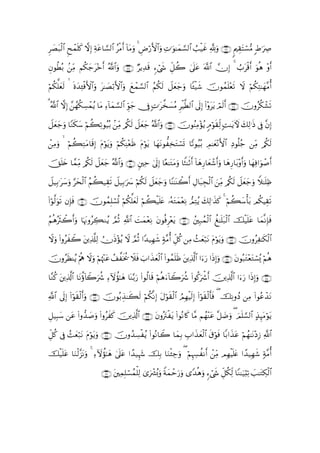 صِرَٰطٍ مُّسْتَقِيمٍ ۝ وَلِلَّهِ غَيْبُ ٱلسَّمَٰوَٰتِ وَٱلْأَرْضِ ۚ وَمَآ أَمْرُ ٱلسَّاعَةِ إِلَّا كَلَمْحِ ٱلْبَصَرِ
أَوْ هُوَ أَقْرَبُ ۚ إِنَّ ٱللَّهَ عَلَىٰ كُلِّ شَىْءٍ قَدِيرٌ ۝ وَٱللَّهُ أَخْرَجَكُم مِّنۢ بُطُونِ
أُمَّهَٰتِكُمْ لَا تَعْلَمُونَ شَيْـًٔا وَجَعَلَ لَكُمُ ٱلسَّمْعَ وَٱلْأَبْصَٰرَ وَٱلْأَفْـِٔدَةَ ۙ لَعَلَّكُمْ
تَشْكُرُونَ ۝ أَلَمْ يَرَوْا۟ إِلَى ٱلطَّيْرِ مُسَخَّرَٰتٍ فِى جَوِّ ٱلسَّمَآءِ مَا يُمْسِكُهُنَّ إِلَّا ٱللَّهُ ۗ
إِنَّ فِى ذَٰلِكَ لَءَايَٰتٍ لِّقَوْمٍ يُؤْمِنُونَ ۝ وَٱللَّهُ جَعَلَ لَكُم مِّنۢ بُيُوتِكُمْ سَكَنًا وَجَعَلَ
لَكُم مِّن جُلُودِ ٱلْأَنْعَٰمِ بُيُوتًا تَسْتَخِفُّونَهَا يَوْمَ ظَعْنِكُمْ وَيَوْمَ إِقَامَتِكُمْ ۙ وَمِنْ
أَصْوَافِهَا وَأَوْبَارِهَا وَأَشْعَارِهَآ أَثَٰثًا وَمَتَٰعًا إِلَىٰ حِينٍ ۝ وَٱللَّهُ جَعَلَ لَكُم مِّمَّا خَلَقَ
ظِلَٰلًا وَجَعَلَ لَكُم مِّنَ ٱلْجِبَالِ أَكْنَٰنًا وَجَعَلَ لَكُمْ سَرَٰبِيلَ تَقِيكُمُ ٱلْحَرَّ وَسَرَٰبِيلَ
تَقِيكُم بَأْسَكُمْ ۚ كَذَٰلِكَ يُتِمُّ نِعْمَتَهُۥ عَلَيْكُمْ لَعَلَّكُمْ تُسْلِمُونَ ۝ فَإِن تَوَلَّوْا۟
فَإِنَّمَا عَلَيْكَ ٱلْبَلَٰغُ ٱلْمُبِينُ ۝ يَعْرِفُونَ نِعْمَتَ ٱللَّهِ ثُمَّ يُنكِرُونَهَا وَأَكْثَرُهُمُ
ٱلْكَٰفِرُونَ ۝ وَيَوْمَ نَبْعَثُ مِن كُلِّ أُمَّةٍ شَهِيدًا ثُمَّ لَا يُؤْذَنُ لِلَّذِينَ كَفَرُوا۟ وَلَا
هُمْ يُسْتَعْتَبُونَ ۝ وَإِذَا رَءَا ٱلَّذِينَ ظَلَمُوا۟ ٱلْعَذَابَ فَلَا يُخَفَّفُ عَنْهُمْ وَلَا هُمْ يُنظَرُونَ ۝
وَإِذَا رَءَا ٱلَّذِينَ أَشْرَكُوا۟ شُرَكَآءَهُمْ قَالُوا۟ رَبَّنَا هَٰٓؤُلَآءِ شُرَكَآؤُنَا ٱلَّذِينَ كُنَّا
نَدْعُوا۟ مِن دُونِكَ ۖ فَأَلْقَوْا۟ إِلَيْهِمُ ٱلْقَوْلَ إِنَّكُمْ لَكَٰذِبُونَ ۝ وَأَلْقَوْا۟ إِلَى ٱللَّهِ
يَوْمَئِذٍ ٱلسَّلَمَ ۖ وَضَلَّ عَنْهُم مَّا كَانُوا۟ يَفْتَرُونَ ۝ ٱلَّذِينَ كَفَرُوا۟ وَصَدُّوا۟ عَن سَبِيلِ
ٱللَّهِ زِدْنَٰهُمْ عَذَابًا فَوْقَ ٱلْعَذَابِ بِمَا كَانُوا۟ يُفْسِدُونَ ۝ وَيَوْمَ نَبْعَثُ فِى كُلِّ
أُمَّةٍ شَهِيدًا عَلَيْهِم مِّنْ أَنفُسِهِمْ ۖ وَجِئْنَا بِكَ شَهِيدًا عَلَىٰ هَٰٓؤُلَآءِ ۚ وَنَزَّلْنَا عَلَيْكَ
ٱلْكِتَٰبَ تِبْيَٰنًا لِّكُلِّ شَىْءٍ وَهُدًى وَرَحْمَةً وَبُشْرَىٰ لِلْمُسْلِمِينَ ۝